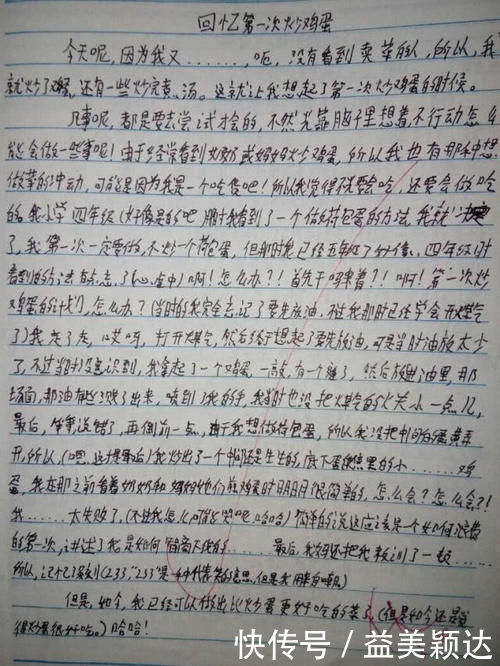 回忆第一次炒鸡蛋
今天呢,因为我又……,呃,没有看到卖菜的人,所以,我
就炒了鸡蛋,还有一些炒完煮汤。这就让我想起了第一次炒鸡蛋的时候。
凡事呢,都是要去尝试才会的,不然光靠脑子里想着,不行动怎么
能会做一些事呢!由于经常看到奶奶或妈妈炒鸡蛋,所以我也有那种想
做菜的冲动,可能是因为我是一个吃货吧!所以我觉得不但要会吃,还要会做吃
的。我小学四年级(好像是的吧)那时我看到了一个做荷包蛋的方法,我就决定
了,我第一次一定要做,不炒一个荷包蛋,但那时我已经五年级了
看到的方法有点忘了(心虚中)啊!怎么办?!首先干嘛来着?!啊!第一次炒
鸡蛋的计划,怎么办?(当时的我完全忘记了要先放油,不过我那时已经学会开煤气
了)我忘了点,哎呀,打开煤气,然后终于想起了要先放油,可是当时油放太少
了,不过当时没意识到,我拿起了一个鸡蛋,一敲,有一个缝了,然后放进油里,那
场面,那油有些溅了出来,喷到了我的手,我当时也没把煤气的火关小一点儿,
最后,等等说错了,再倒前一点,由于我想做荷包蛋,所以我没把中间的蛋黄弄
开,所以,(嗯,这才是最后)我炒出了一个中间还是生生的,底下蛋焦黑的小……鸡
蛋,我在那之前看着奶奶和妈妈他们煎鸡蛋时明明很简单的,怎么会?怎么会?!
我……太失败了,(不过我怎么可能哭呢,哈哈)简单的说这应该是一个如何浪费
的第一次,讲述了我是如何……最后,我妈还把我教训了一顿……
所以,记忆深刻(233,"233"是一种代表笑的意思,但是我用来自嘲)
但是,如今,我已经可以做出比炒蛋更好吃的菜了(但是如今还是觉
得炒蛋很好吃。)哈哈!
快传号/益美颖达